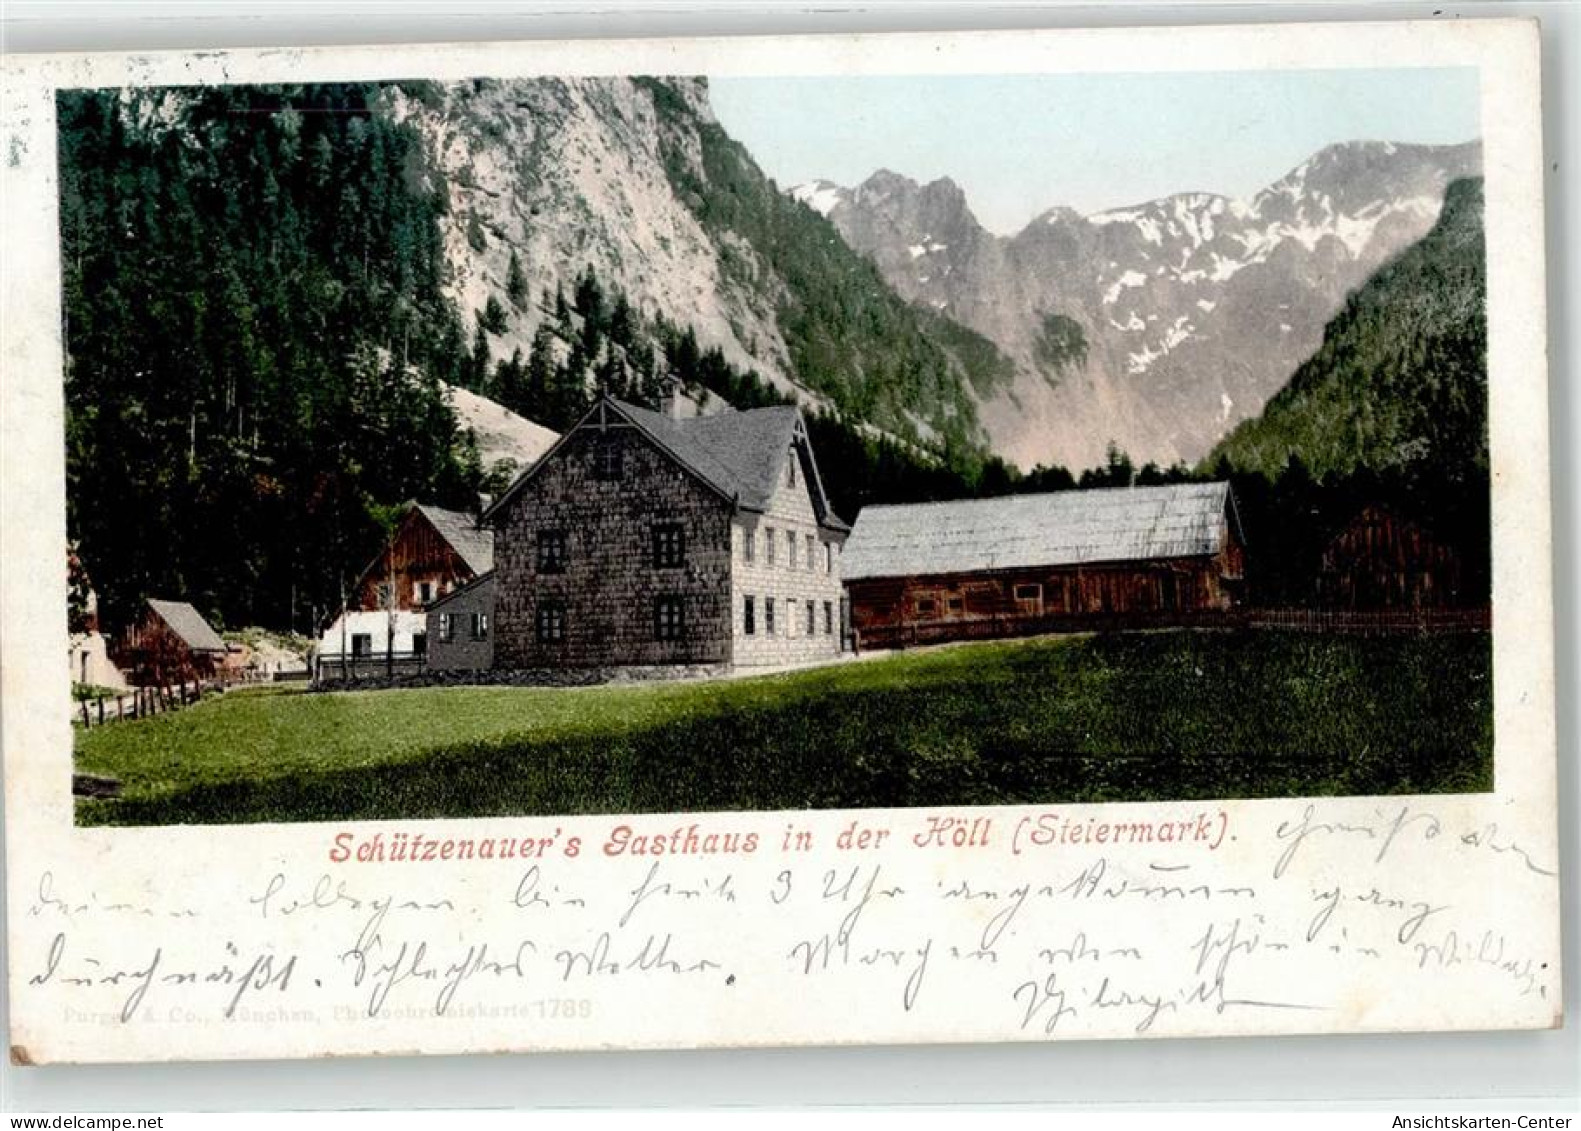 Schützenauer's Gasthaus in der Höll (Steiermark).
Gruß an
deinen Collegen. bin heute 3 Uhr angekomen ganz
durchnäßt. Schlechtes Wetter. Morgen schön in
Purger & Co., München, Photochromiekarte 1789
oldthing.de
Ansichtskarten-Center